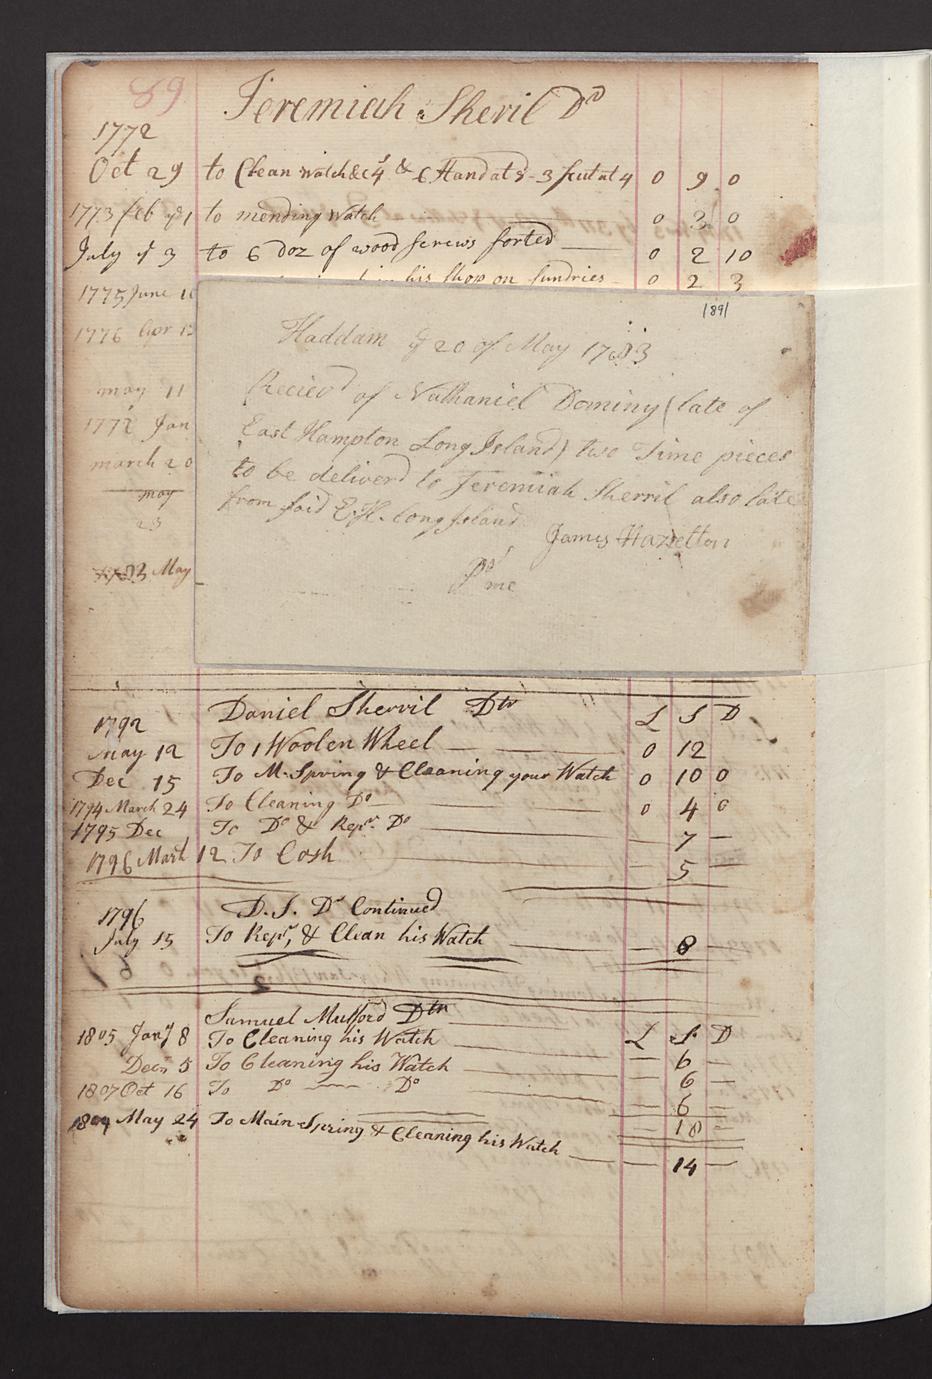 89
Jeremiah Sheril Dr
1772
Oct 29 to Clean watch &c 4/ & 6 Hand at 8 - 3 feut at 4 0 9 0
1773 feb ye 1 to mending watch 0 3 0
July ye 3 to 6 doz of wood screws sorted 0 2 10
in his shop on sundries 0 2 3
1775 June 1
1776 Apr 1
may 11
1778 Jan
march 20
may
23
1783 May
1891
Haddam ye 20 of May 1783
Recievd of Nathaniel Dominy (late of
East Hampton Long Island) two Time pieces
to be deliverd to Jeremiah Sherril also late
from said E:H. long Island
James Hazelton
Pr me
Daniel Sherril Dtr L S D
1792
May 12 To 1 Woolen Wheel 0 12
Dec 15 To M. Spring & Cleaning your Watch 0 10 0
1794 March 24 To Cleaning Do 0 4 0
1795 Dec To Do & Repr. Do — 7 —
1796 March 12 To Cash — 5 —
1796 D. S. Dr Continued
July 15 To Repr, & Clean his Watch — 8 —
Samuel Mulford Dtr L S D
1805 Jany 8 To Cleaning his Watch — 6 —
Decr 5 To Cleaning his Watch — 6 —
1807 Oct 16 To Do — Do — 6 —
— 18 —
1809 May 24 To Main-Spring & Cleaning his Watch — 14 —